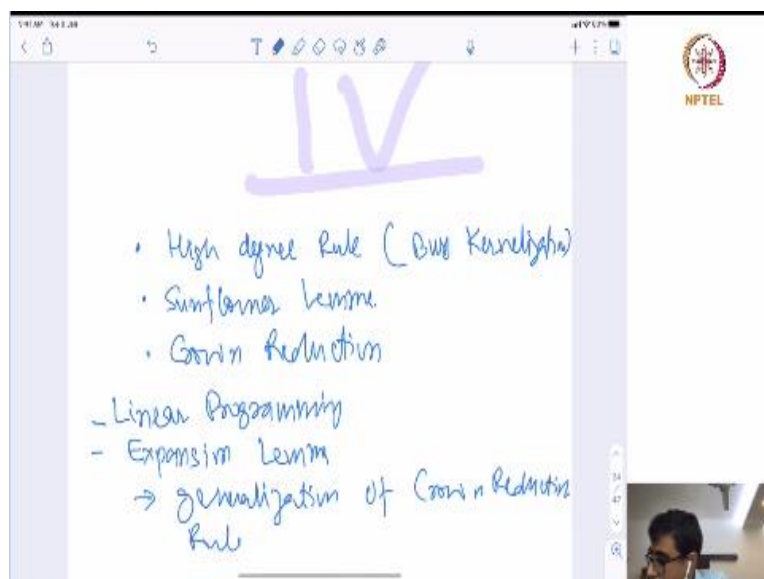 NPTEL
IV
• High degree Rule (Buss Kernelization)
• Sunflower Lemma
• Crown Reduction
- Linear Programming
- Expansion Lemma
→ generalization of Crown Reduction
Rule